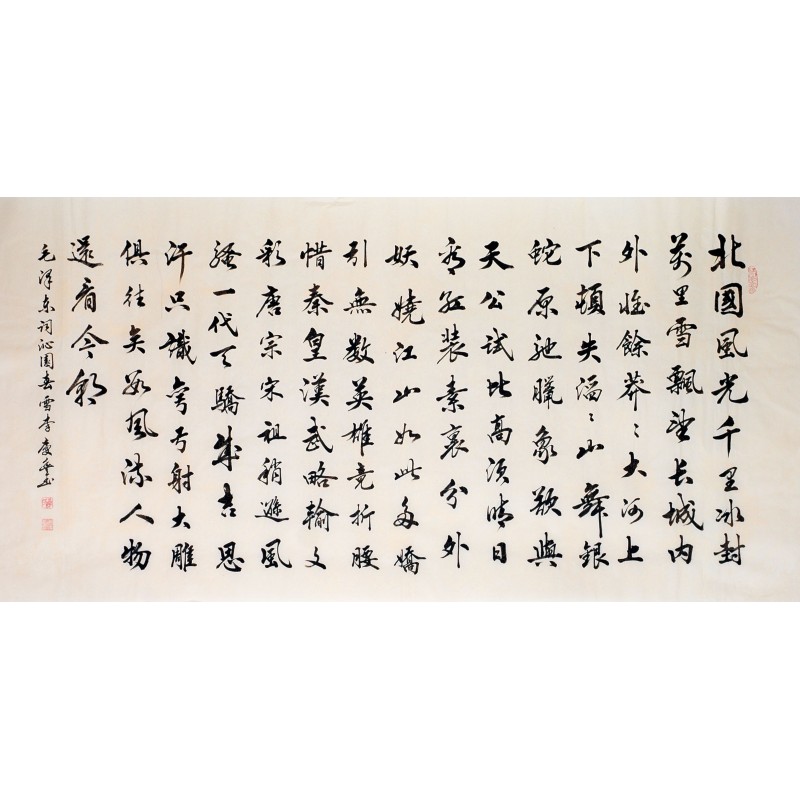 北國風光千里冰封
萬里雪飄望长城内
外惟餘莽〻大河上
下頓失滔〻山舞銀
蛇原驰臘象欲與
天公試比高須晴日
看红装素裹分外
妖嬈江山如此多嬌
引無数英雄竞折腰
惜秦皇漢武略輸文
彩唐宗宋祖稍遜風
騷一代天驕成吉思
汗只識彎弓射大雕
俱往矣数風流人物
還看今朝
毛泽东词沁園春雪李慶书